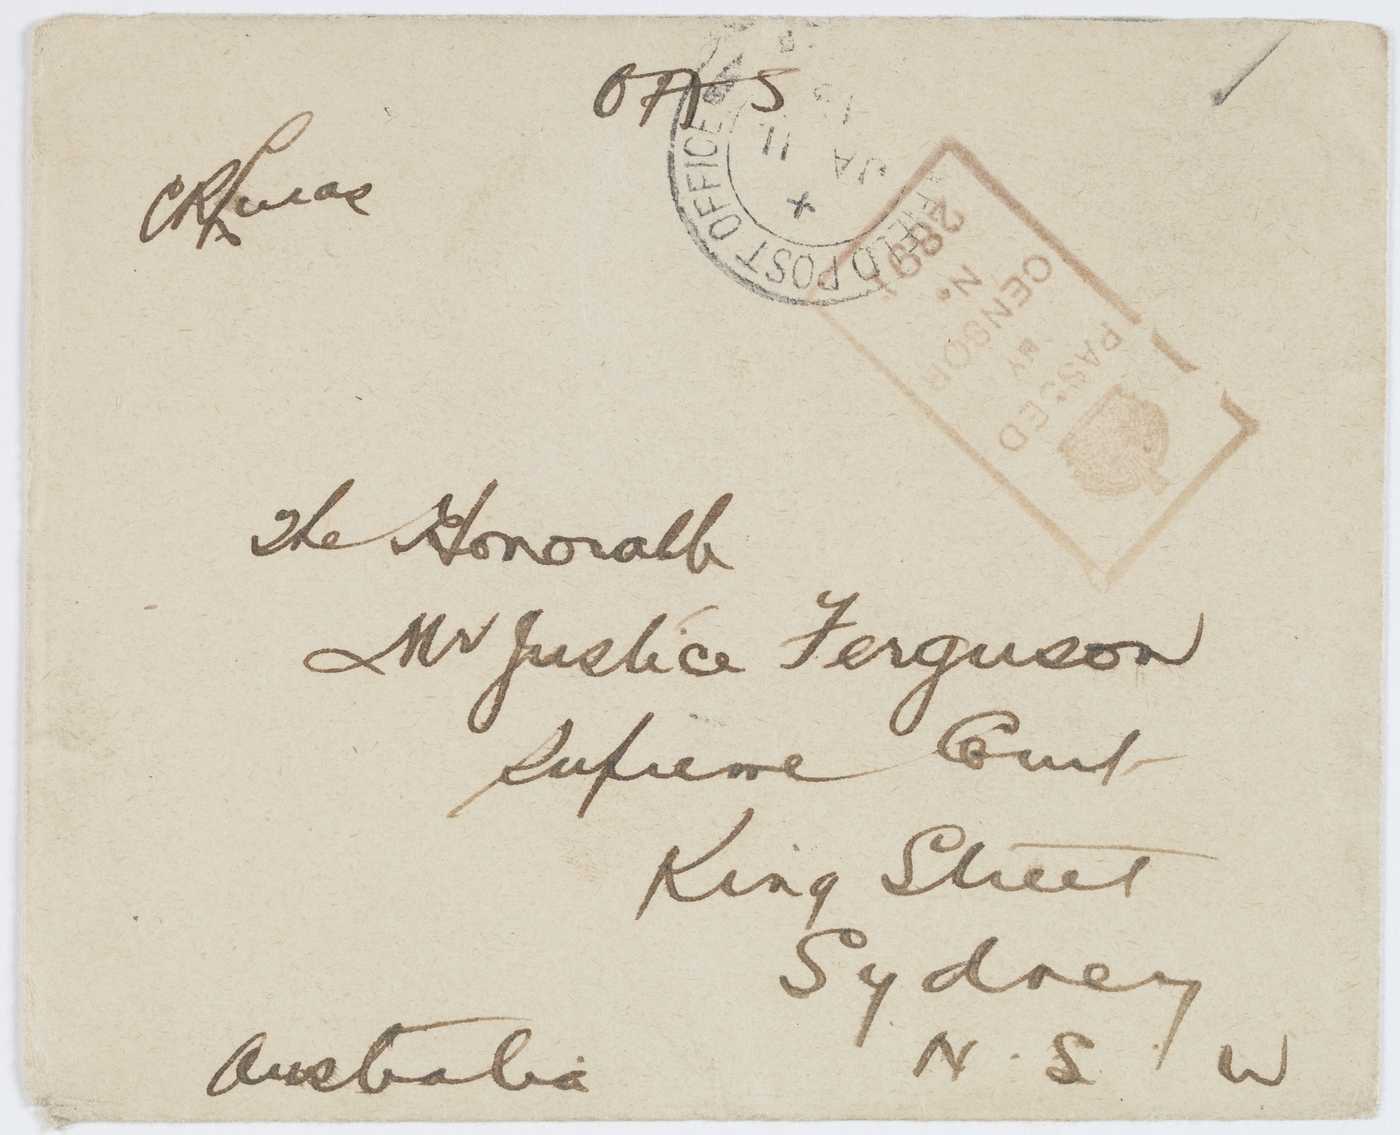 OAS
CR Lucas
FIELD POST OFFICE
X
11
JA
PASSED
BY
CENSOR
No.
2890
The Honorable
Mr Justice Ferguson
Supreme Court
King Street
Sydney
N. S. W
Australia